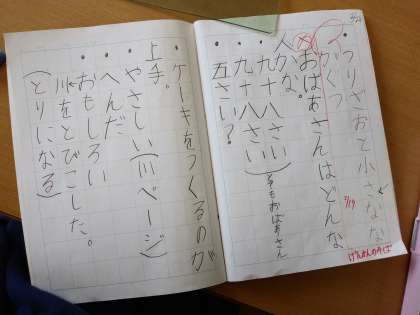 つりざおと小さなな
がくつ
おばあさんはどんな
人かな。
九十八さい
九十八さい(とてもおばあさん
五さい?
ケーキをつくるのが
上手。
やさしい(川ページ)
へんだ
おもしろい
川をとびこした。
(とりになる)